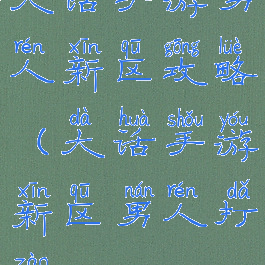 大话手游男
rén xīn qū gōng lüè
人新区攻略
dà huà shǒu yóu
(大话手游
xīn qū nán rén dǎ
新区男人打
zào